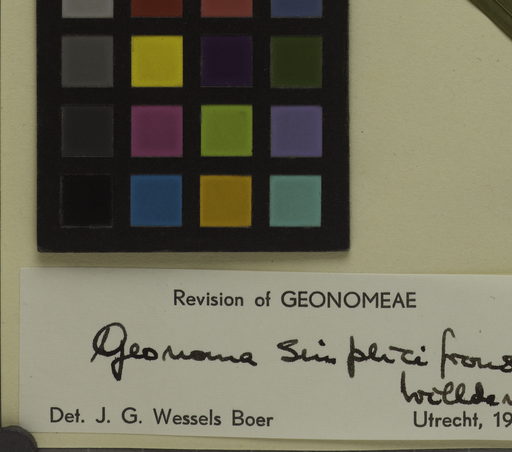 Revision of GEONOMEAE
Geonoma simplicifrons
Willden
Det. J. G. Wessels Boer
Utrecht, 19